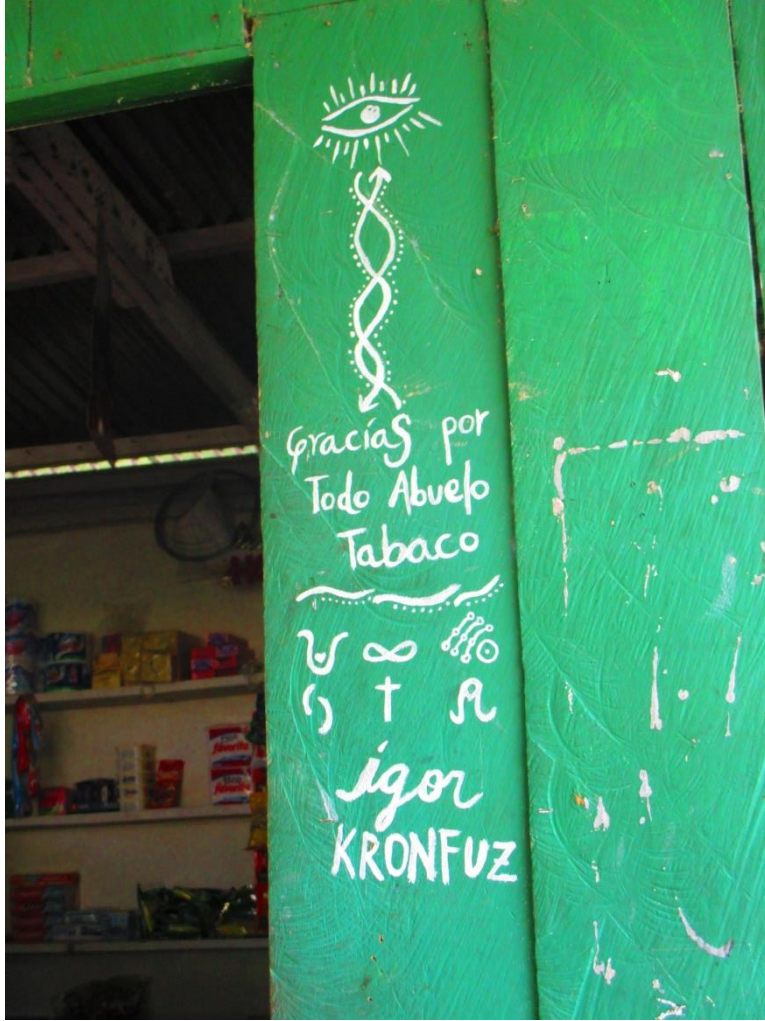 Gracias por
Todo Abuelo
Tabaco
igor
KRONFUZ